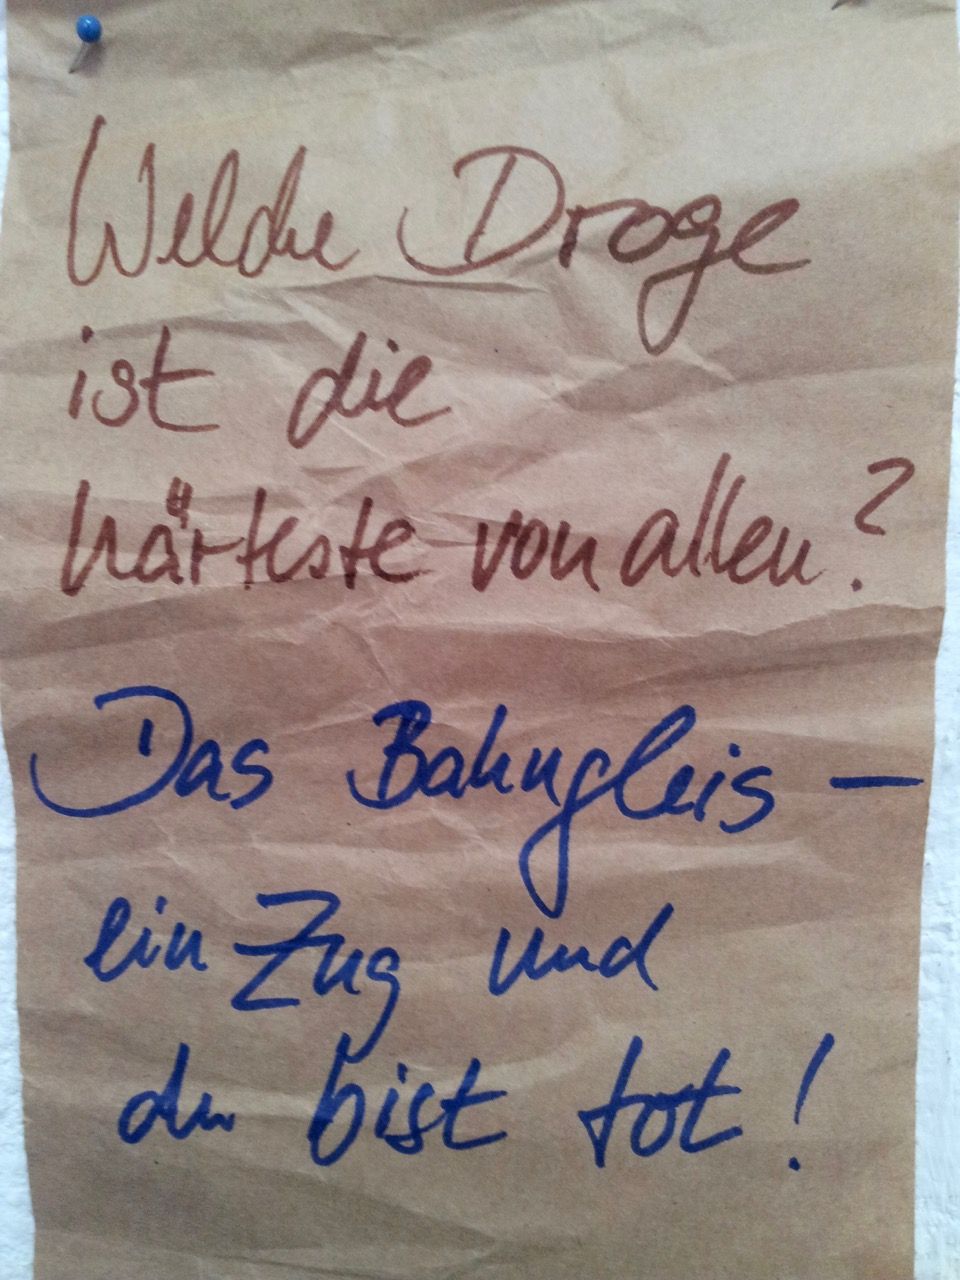 Welche Droge
ist die
härteste von allen?
Das Bahngleis –
ein Zug und
du bist tot!